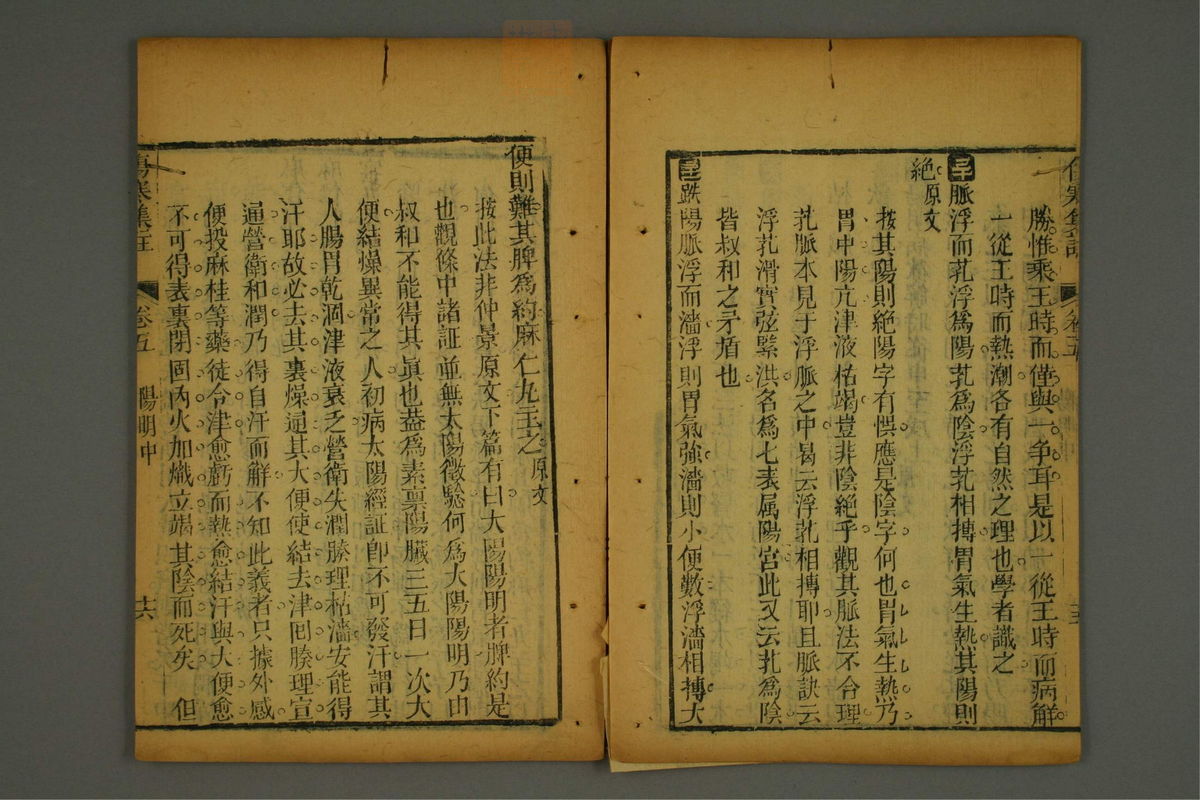 勝惟乘王時而僅與一争耳是以一從王時而病解
一從王時而熱潮各有自然之理也學者識之
脈浮而芤浮爲陽芤爲陰浮芤相搏胃氣生熱其陽則
絶原文
按其陽則絶陽字有悞應是陰字何也胃氣生熱乃
胃中陽亢津液枯竭豈非陰絶乎觀其脈法不合理
芤脈本見于浮脈之中曷云浮芤相搏耶且脈訣云
浮芤滑實弦緊洪名爲七表属陽宮此又云芤爲陰
皆叔和之矛盾也
趺陽脈浮而濇浮則胃氣強濇則小便數浮濇相摶大
便則難其脾爲約麻仁九主之原文
按此法非仲景原文下篇有曰太陽陽明者脾約是
也觀條中諸証並無太陽徵驗何爲太陽陽明乃由
叔和不能得其眞也葢爲素禀陽臓三五日一次大
便結燥異常之人初病太陽經証卽不可發汗謂其
人腸胃乾涸津液衰乏營衛失潤腠理枯濇安能得
汗耶故必去其裏燥通其大便使結去津囘腠理宣
通營衛和潤乃得自汗而解不知此義者只據外感
便投麻桂等藥徒令津愈虧而熱愈結汗與大便愈
不可得表裏閉固内火加熾立竭其陰而死矣 但
傷寒集註 卷五 陽明中